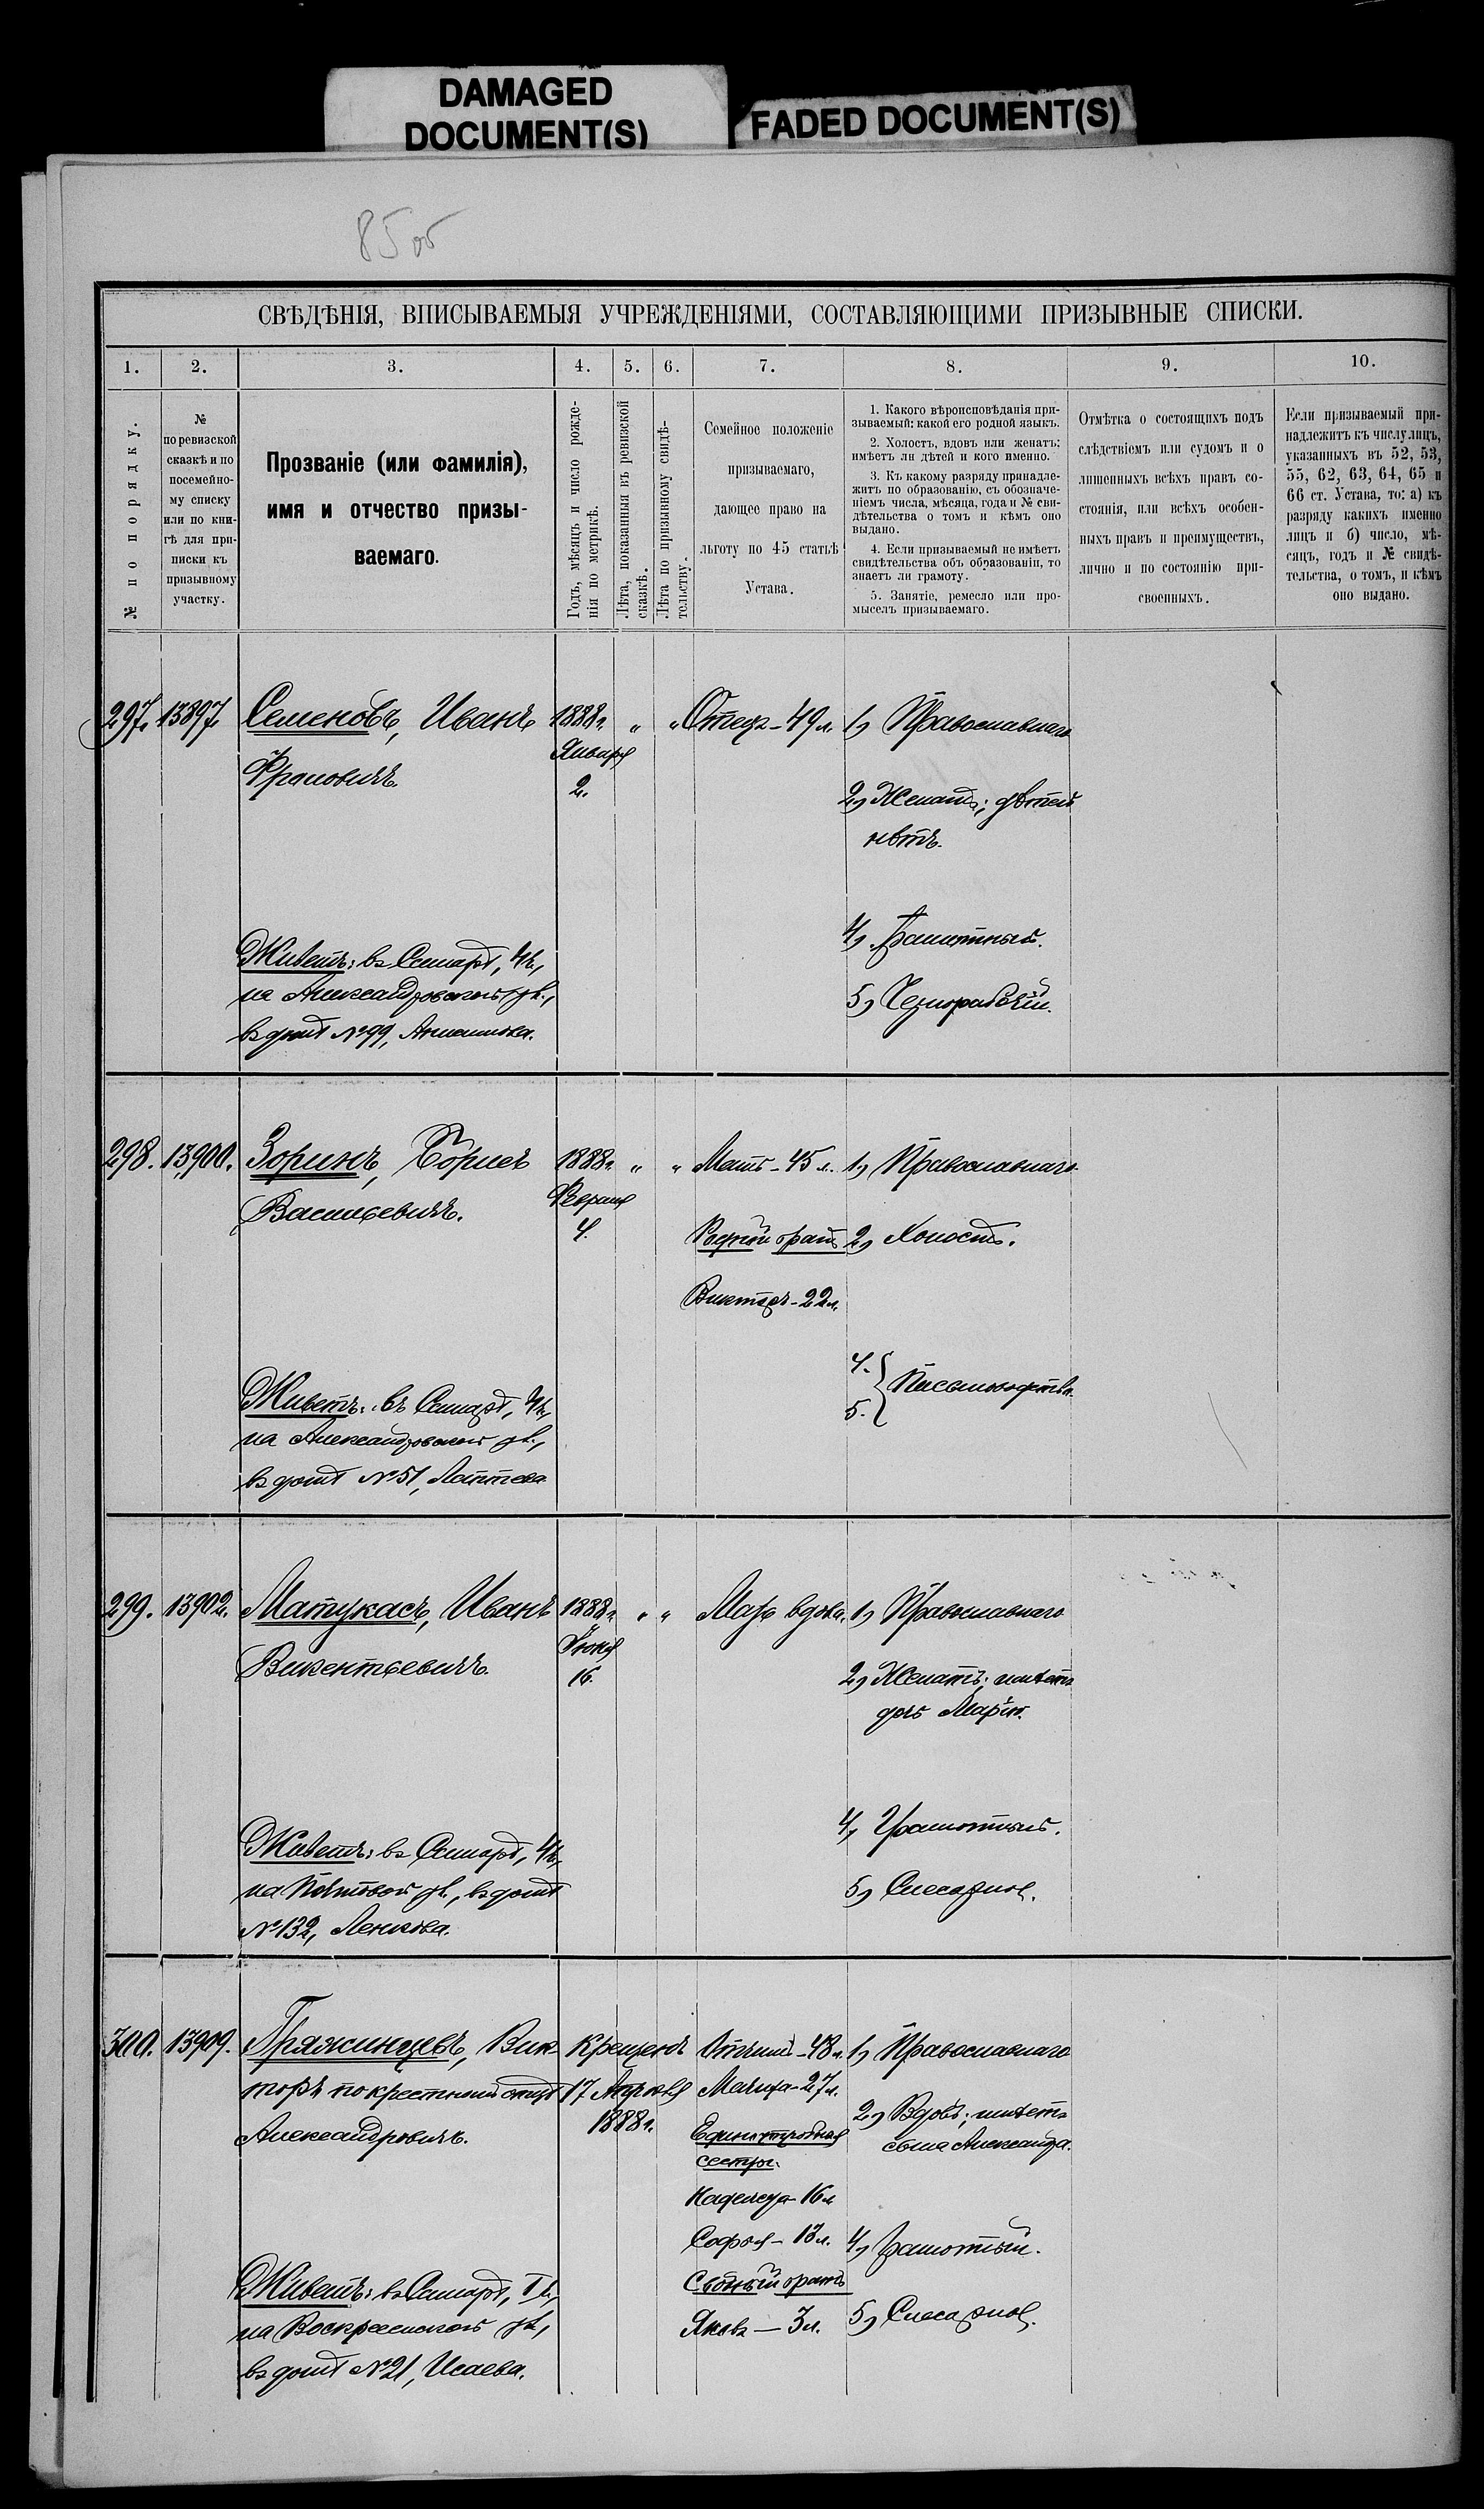 DAMAGED
DOCUMENT(S)
FADED DOCUMENT(S)
85 об
СВѢДѢНІЯ, ВПИСЫВАЕМЫЯ УЧРЕЖДЕНІЯМИ, СОСТАВЛЯЮЩИМИ ПРИЗЫВНЫЕ СПИСКИ.
1. 2. 3. 4. 5. 6. 7. 8. 9. 10.
№ по порядку.
№
по ревизской
сказкѣ и по
посемейно-
му списку
или по кни-
гѣ для при-
писки къ
призывному
участку.
Прозваніе (или фамилія),
имя и отчество призы-
ваемаго.
Годъ, мѣсяцъ и число рожде-
нія по метрикѣ.
Лѣта, показанныя въ ревизской
сказкѣ.
Лѣта по призывному свидѣ-
тельству.
Семейное положеніе
призываемаго,
дающее право на
льготу по 45 статьѣ
Устава.
1. Какого вѣроисповѣданія при-
зываемый; какой его родной языкъ.
2. Холостъ, вдовъ или женатъ;
имѣетъ ли дѣтей и кого именно.
3. Къ какому разряду принадле-
житъ по образованію, съ обозначе-
ніемъ числа, мѣсяца, года и № сви-
дѣтельства о томъ и кѣмъ оно
выдано.
4. Если призываемый не имѣетъ
свидѣтельства объ образованіи, то
знаетъ ли грамоту.
5. Занятіе, ремесло или про-
мыселъ призываемаго.
Отмѣтка о состоящихъ подъ
слѣдствіемъ или судомъ и о
лишенныхъ всѣхъ правъ со-
стоянія, или всѣхъ особен-
ныхъ правъ и преимуществъ,
лично и по состоянію при-
своенныхъ.
Если призываемый при-
надлежитъ къ числу лицъ,
указанныхъ въ 52, 53,
55, 62, 63, 64, 65 и
66 ст. Устава, то: а) къ
разряду какихъ именно
лицъ и б) число, мѣ-
сяцъ, годъ и № свидѣ-
тельства, о томъ, и кѣмъ
оно выдано.
297. 13897. Семеновъ, Иванъ 1888г. " " Отецъ - 49 л. 1) Православнаго
Января
Фроловичъ.
2.
2) Женатъ; дѣтей
нѣтъ.
4) Грамотный.
Живетъ: въ Самарѣ, 4 ч.,
на Александровской ул.,
5) Чернорабочій.
въ домѣ №99,
298. 13900. Зоринъ, Борисъ 1888г. " " Мать - 45 л. 1) Православнаго
Февраля
Васильевичъ.
4.
Родной братъ 2) Холостъ.
Викторъ - 22 л.
4.
5. Письмоводство.
Живетъ: въ Самарѣ, 4 ч.,
на Александровской ул.,
въ домѣ №51, Лаптева
299. 13902. Матукасъ, Иванъ 1888г. " " Мать вдова. 1) Православнаго
Іюня
Викентьевичъ.
16.
2) Женатъ; имѣетъ
дочь Марію.
4) Грамотный.
Живетъ: въ Самарѣ, 4 ч.,
5) Слесарное.
на ул., въ домѣ
№132,
300. 13909. Пряжинцевъ, Вик- Крещенъ Отчимъ - 48 л. 1) Православнаго
торъ по крестному отцу 17 Апрѣля Мачиха - 27 л.
Александровичъ. 1888г.
2) Вдовъ; имѣетъ
Единоутробныя
сына Александра.
сестры:
Надежда - 16 л.
Софья - 13 л. 4) Грамотный.
Сводный братъ
Живетъ: въ Самарѣ, 1 ч.,
Яковъ — 3 л. 5) Слесарное.
на Воскресенской ул.,
въ домѣ №21, Исаева.